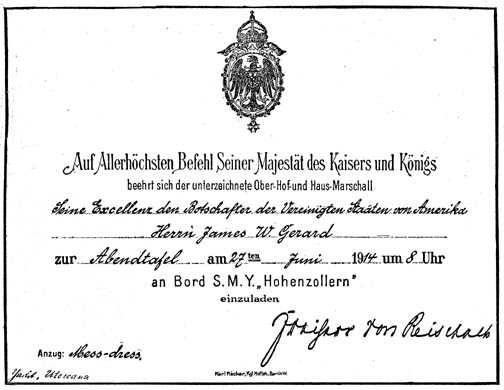 Auf Allerhöchsten Befehl Seiner Majestät des Kaisers und Königs
beehrt sich der unterzeichnete Ober-Hof-und Haus-Marschall
Seine Excellenz den Botschafter der Vereinigten Staaten von Amerika
Herrn James W. Gerard
zur Abendtafel am 27ten Juni 1914 um 8 Uhr
an Bord S.M.Y. „Hohenzollern"
einzuladen
Freiherr von Reischach
Anzug: Mess-dress.
Yacht, Utowana